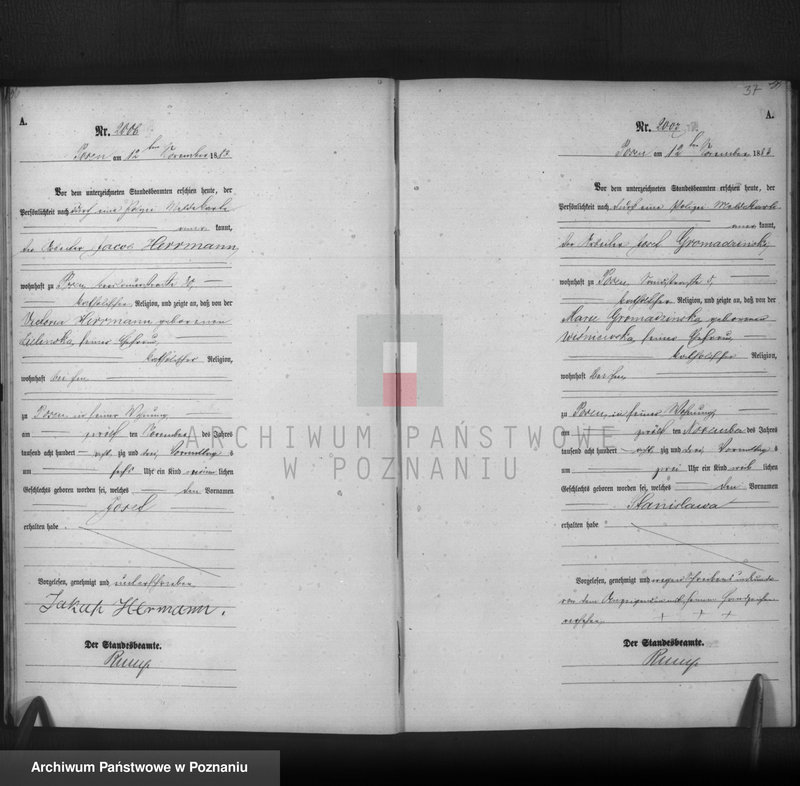 A.
Nr. 2006
Posen am 12 ten November 1883
Vor dem unterzeichneten Standesbeamten erschien heute, der
Persönlichkeit nach durch eine Polizei Meldekarte
kannt,
der Arbeiter Jacob Herrmann,
wohnhaft zu Posen
katholischer Religion, und zeigte an, daß von der
Herrmann geborenen
Zielinska, seiner Ehefrau,
katholischer Religion,
wohnhaft bei ihm
zu Posen, in seiner Wohnung
am ten November des Jahres
tausend acht hundert acht zig und drei, Vormittag s
um sechs Uhr ein Kind männ lichen
Geschlechts geboren worden sei, welches den Vornamen
Josef
erhalten habe
Vorgelesen, genehmigt und unterschrieben
Jakub Hermann.
Der Standesbeamte.
Rump
37
A.
Nr. 2007
Posen am 12 ten November 1883
Vor dem unterzeichneten Standesbeamten erschien heute, der
Persönlichkeit nach durch eine Polizei Meldekarte
kannt,
der Arbeiter Josef Gromadzinski,
wohnhaft zu Posen, 5,
katholischer Religion, und zeigte an, daß von der
Marie Gromadzinska, geborenen
Wiśniewska, seiner Ehefrau,
katholischer Religion,
wohnhaft bei ihm,
zu Posen, in seiner Wohnung
am ten November des Jahres
tausend acht hundert acht zig und drei Vormittag s
um zwei Uhr ein Kind weib lichen
Geschlechts geboren worden sei, welches den Vornamen
Stanisława
erhalten habe
Vorgelesen, genehmigt und wegen Schreibensunkunde
von dem Anzeigenden mit seinem Handzeichen
versehen. + + +
Der Standesbeamte.
Rump
ARCHIWUM PAŃSTWOWE
W POZNANIU
Archiwum Państwowe w Poznaniu